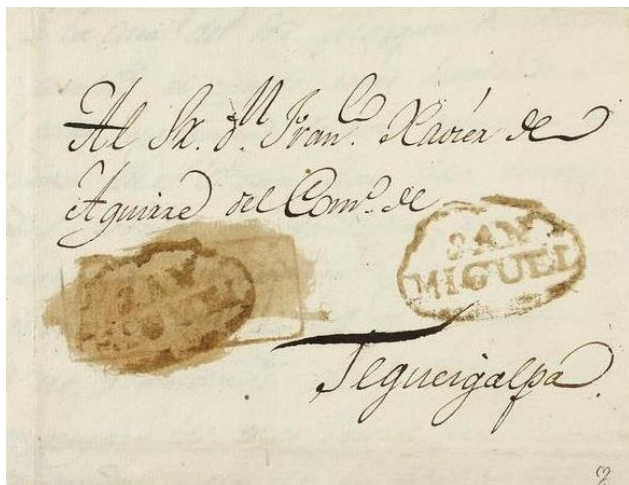 Al Sr. dn. Franco. Xavier de
Aguirre del Como. de
SAN
MIGUEL
SAN
MIGUEL
Tegucigalpa.